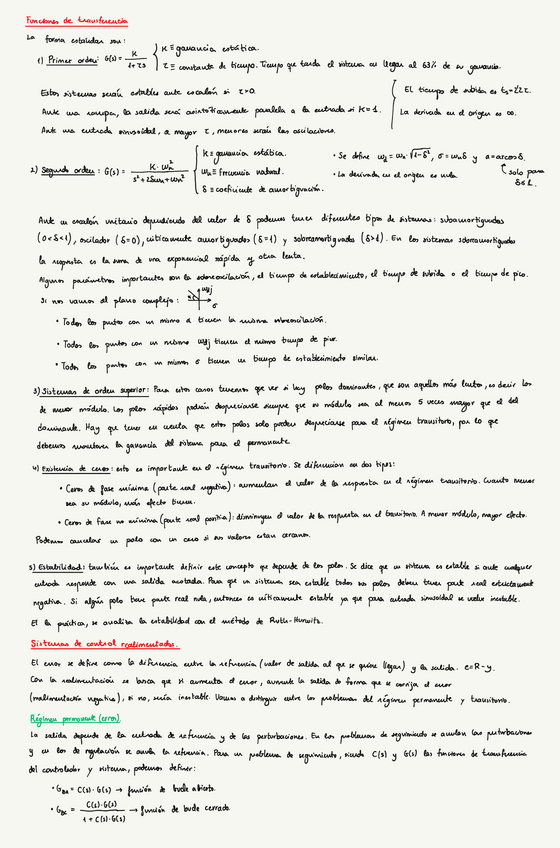 Funciones de transferencia
La forma estándar son:
1) Primer orden: G(s) = K / (1+τs) { K ≡ ganancia estática.
τ ≡ constante de tiempo. Tiempo que tarda el sistema en llegar al 63% de su ganancia.
Estos sistemas serán estables ante escalón si τ>0.
Ante una rampa, la salida será asintóticamente paralela a la entrada si K=1.
Ante una entrada sinusoidal, a mayor τ, menores serán las oscilaciones.
El tiempo de subida es ts=2'2τ.
La derivada en el origen es ∞.
2) Segundo orden: G(s) = K·ωn² / (s²+2δωn+ωn²) { K ≡ ganancia estática.
ωn ≡ frecuencia natural.
δ ≡ coeficiente de amortiguación.
• Se define ωd = ωn·√(1-δ²), σ = ωnδ y α=arccosδ.
• La derivada en el origen es nula.
solo para δ≤1.
Ante un escalón unitario dependiendo del valor de δ podemos tener diferentes tipos de sistemas: subamortiguados
(0<δ<1), oscilador (δ=0), críticamente amortiguados (δ=1) y sobreamortiguados (δ>1). En los sistemas sobreamortiguados
la respuesta es la suma de una exponencial rápida y otra lenta.
Algunos parámetros importantes son la sobreoscilación, el tiempo de establecimiento, el tiempo de subida o el tiempo de pico.
Si nos vamos al plano complejo: ωdj
α
σ
• Todos los puntos con un mismo α tienen la misma sobreoscilación.
• Todos los puntos con un mismo ωdj tienen el mismo tiempo de pico.
• Todos los puntos con un mismo σ tienen un tiempo de establecimiento similar.
3) Sistemas de orden superior: Para estos casos tenemos que ver si hay polos dominantes, que son aquellos más lentos, es decir los
de menor módulo. Los polos rápidos podrán despreciarse siempre que su módulo sea al menos 5 veces mayor que el del
dominante. Hay que tener en cuenta que estos polos solo pueden despreciarse para el régimen transitorio, por lo que
debemos mantener la ganancia del sistema para el permanente.
4) Existencia de ceros: esto es importante en el régimen transitorio. Se diferencian en dos tipos:
• Ceros de fase mínima (parte real negativa): aumentan el valor de la respuesta en el régimen transitorio. Cuanto menor
sea su módulo, más efecto tienen.
• Ceros de fase no mínima (parte real positiva): disminuyen el valor de la respuesta en el transitorio. A menor módulo, mayor efecto.
Podemos cancelar un polo con un cero si sus valores están cercanos.
5) Estabilidad: también es importante definir este concepto que depende de los polos. Se dice que un sistema es estable si ante cualquier
entrada responde con una salida acotada. Para que un sistema sea estable todos sus polos deben tener parte real estrictamente
negativa. Si algún polo tiene parte real nula, entonces es críticamente estable ya que para entrada sinusoidal se vuelve inestable.
En la práctica, se analiza la estabilidad con el método de Ruth-Hurwitz.
Sistemas de control realimentados.
El error se define como la diferencia entre la referencia (valor de salida al que se quiere llegar) y la salida. e=R-y.
Con la realimentación se busca que si aumenta el error, aumente la salida de forma que se corrija el error
(realimentación negativa), si no, sería inestable. Vamos a distinguir entre los problemas del régimen permanente y transitorio.
Régimen permanente (error).
La salida depende de la entrada de referencia y de las perturbaciones. En los problemas de seguimiento se anulan las perturbaciones
y en los de regulación se anula la referencia. Para un problema de seguimiento, siendo C(s) y G(s) las funciones de transferencia
del controlador y sistema, podemos definir:
• GBA = C(s)·G(s) → función de bucle abierto.
• GBC = C(s)·G(s) / (1+C(s)·G(s)) → función de bucle cerrado.